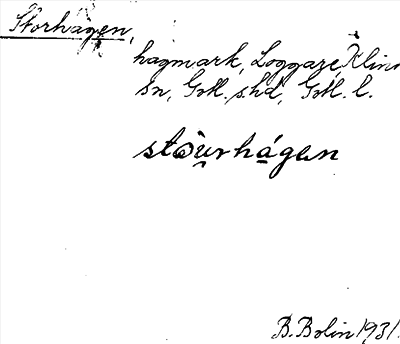 Storhagen,
hagmark, Loggarve, Klinte
sn, Gotl. s. hd, Gotl. l.
stòu̯rhágen
B. Bolin 1931.